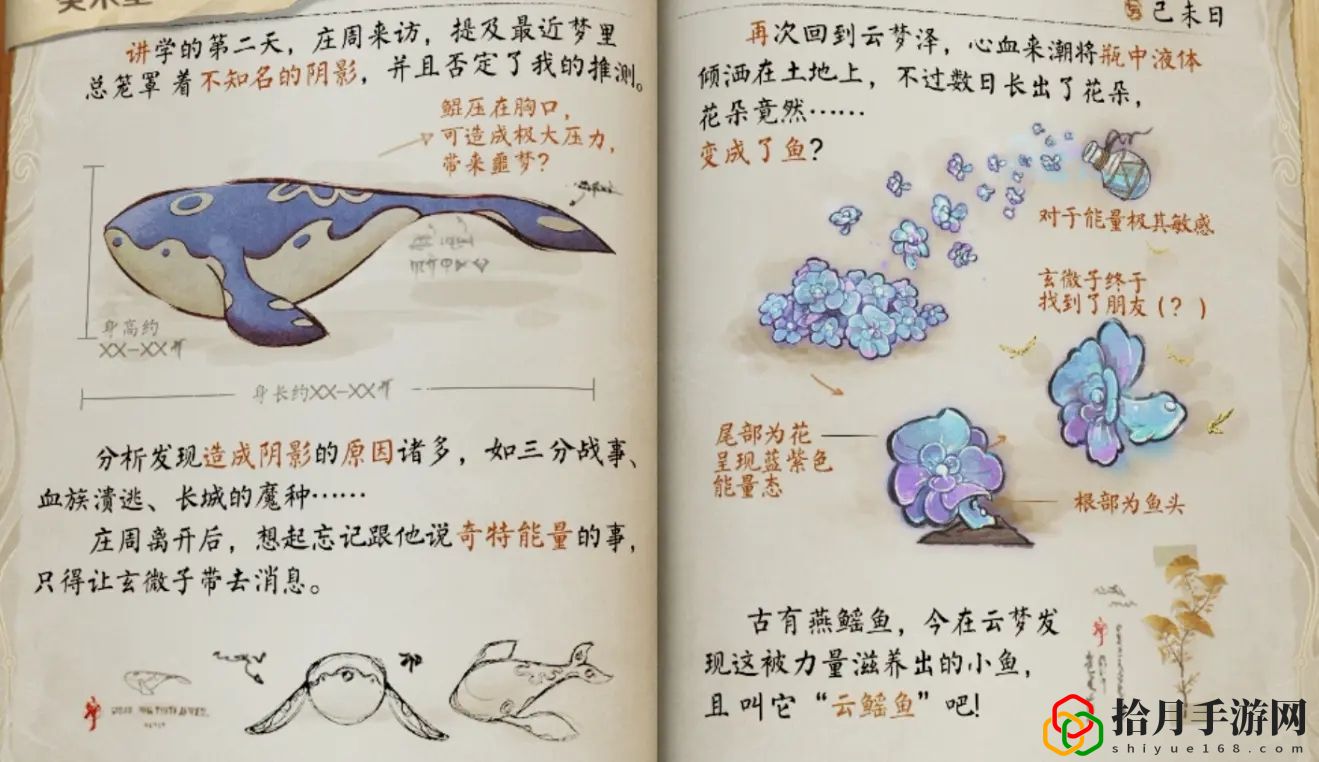 讲学的第二天，庄周来访，提及最近梦里
总笼罩着不知名的阴影，并且否定了我的推测。
鲲压在胸口，
可造成极大压力，
带来噩梦？
身高约
XX-XX
身长约XX-XX
分析发现造成阴影的原因诸多，如三分战事、
血族溃逃、长城的魔种……
庄周离开后，想起忘记跟他说奇特能量的事，
只得让玄微子带去消息。
己未日
再次回到云梦泽，心血来潮将瓶中液体
倾洒在土地上，不过数日长出了花朵，
花朵竟然……
变成了鱼？
对于能量极其敏感
玄微子终于
找到了朋友（？）
尾部为花
呈现蓝紫色
能量态
根部为鱼头
古有燕鳐鱼，今在云梦发
现这被力量滋养出的小鱼，
且叫它“云鳐鱼”吧！
拾月手游网
shiyue168.com